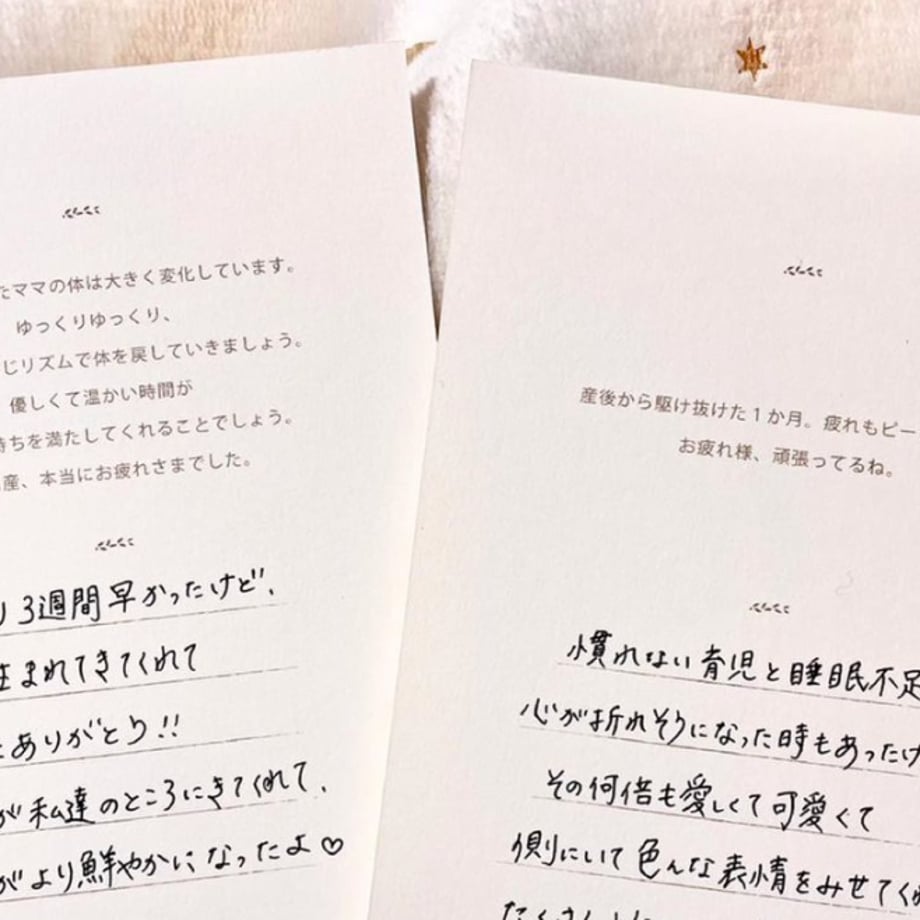 たママの体は大きく変化しています。
ゆっくりゆっくり、
じリズムで体を戻していきましょう。
優しくて温かい時間が
持ちを満たしてくれることでしょう。
産、本当にお疲れさまでした。
り3週間早かったけど、
生まれてきてくれて
ありがとう!!
が私達のところにきてくれて、
がより鮮やかになったよ♡
産後から駆け抜けた1か月。疲れもピー
お疲れ様、頑張ってるね。
慣れない育児と睡眠不足
心が折れそうになった時もあったけ
その何倍も愛しくて可愛くて
側にいて色んな表情をみせてくれ